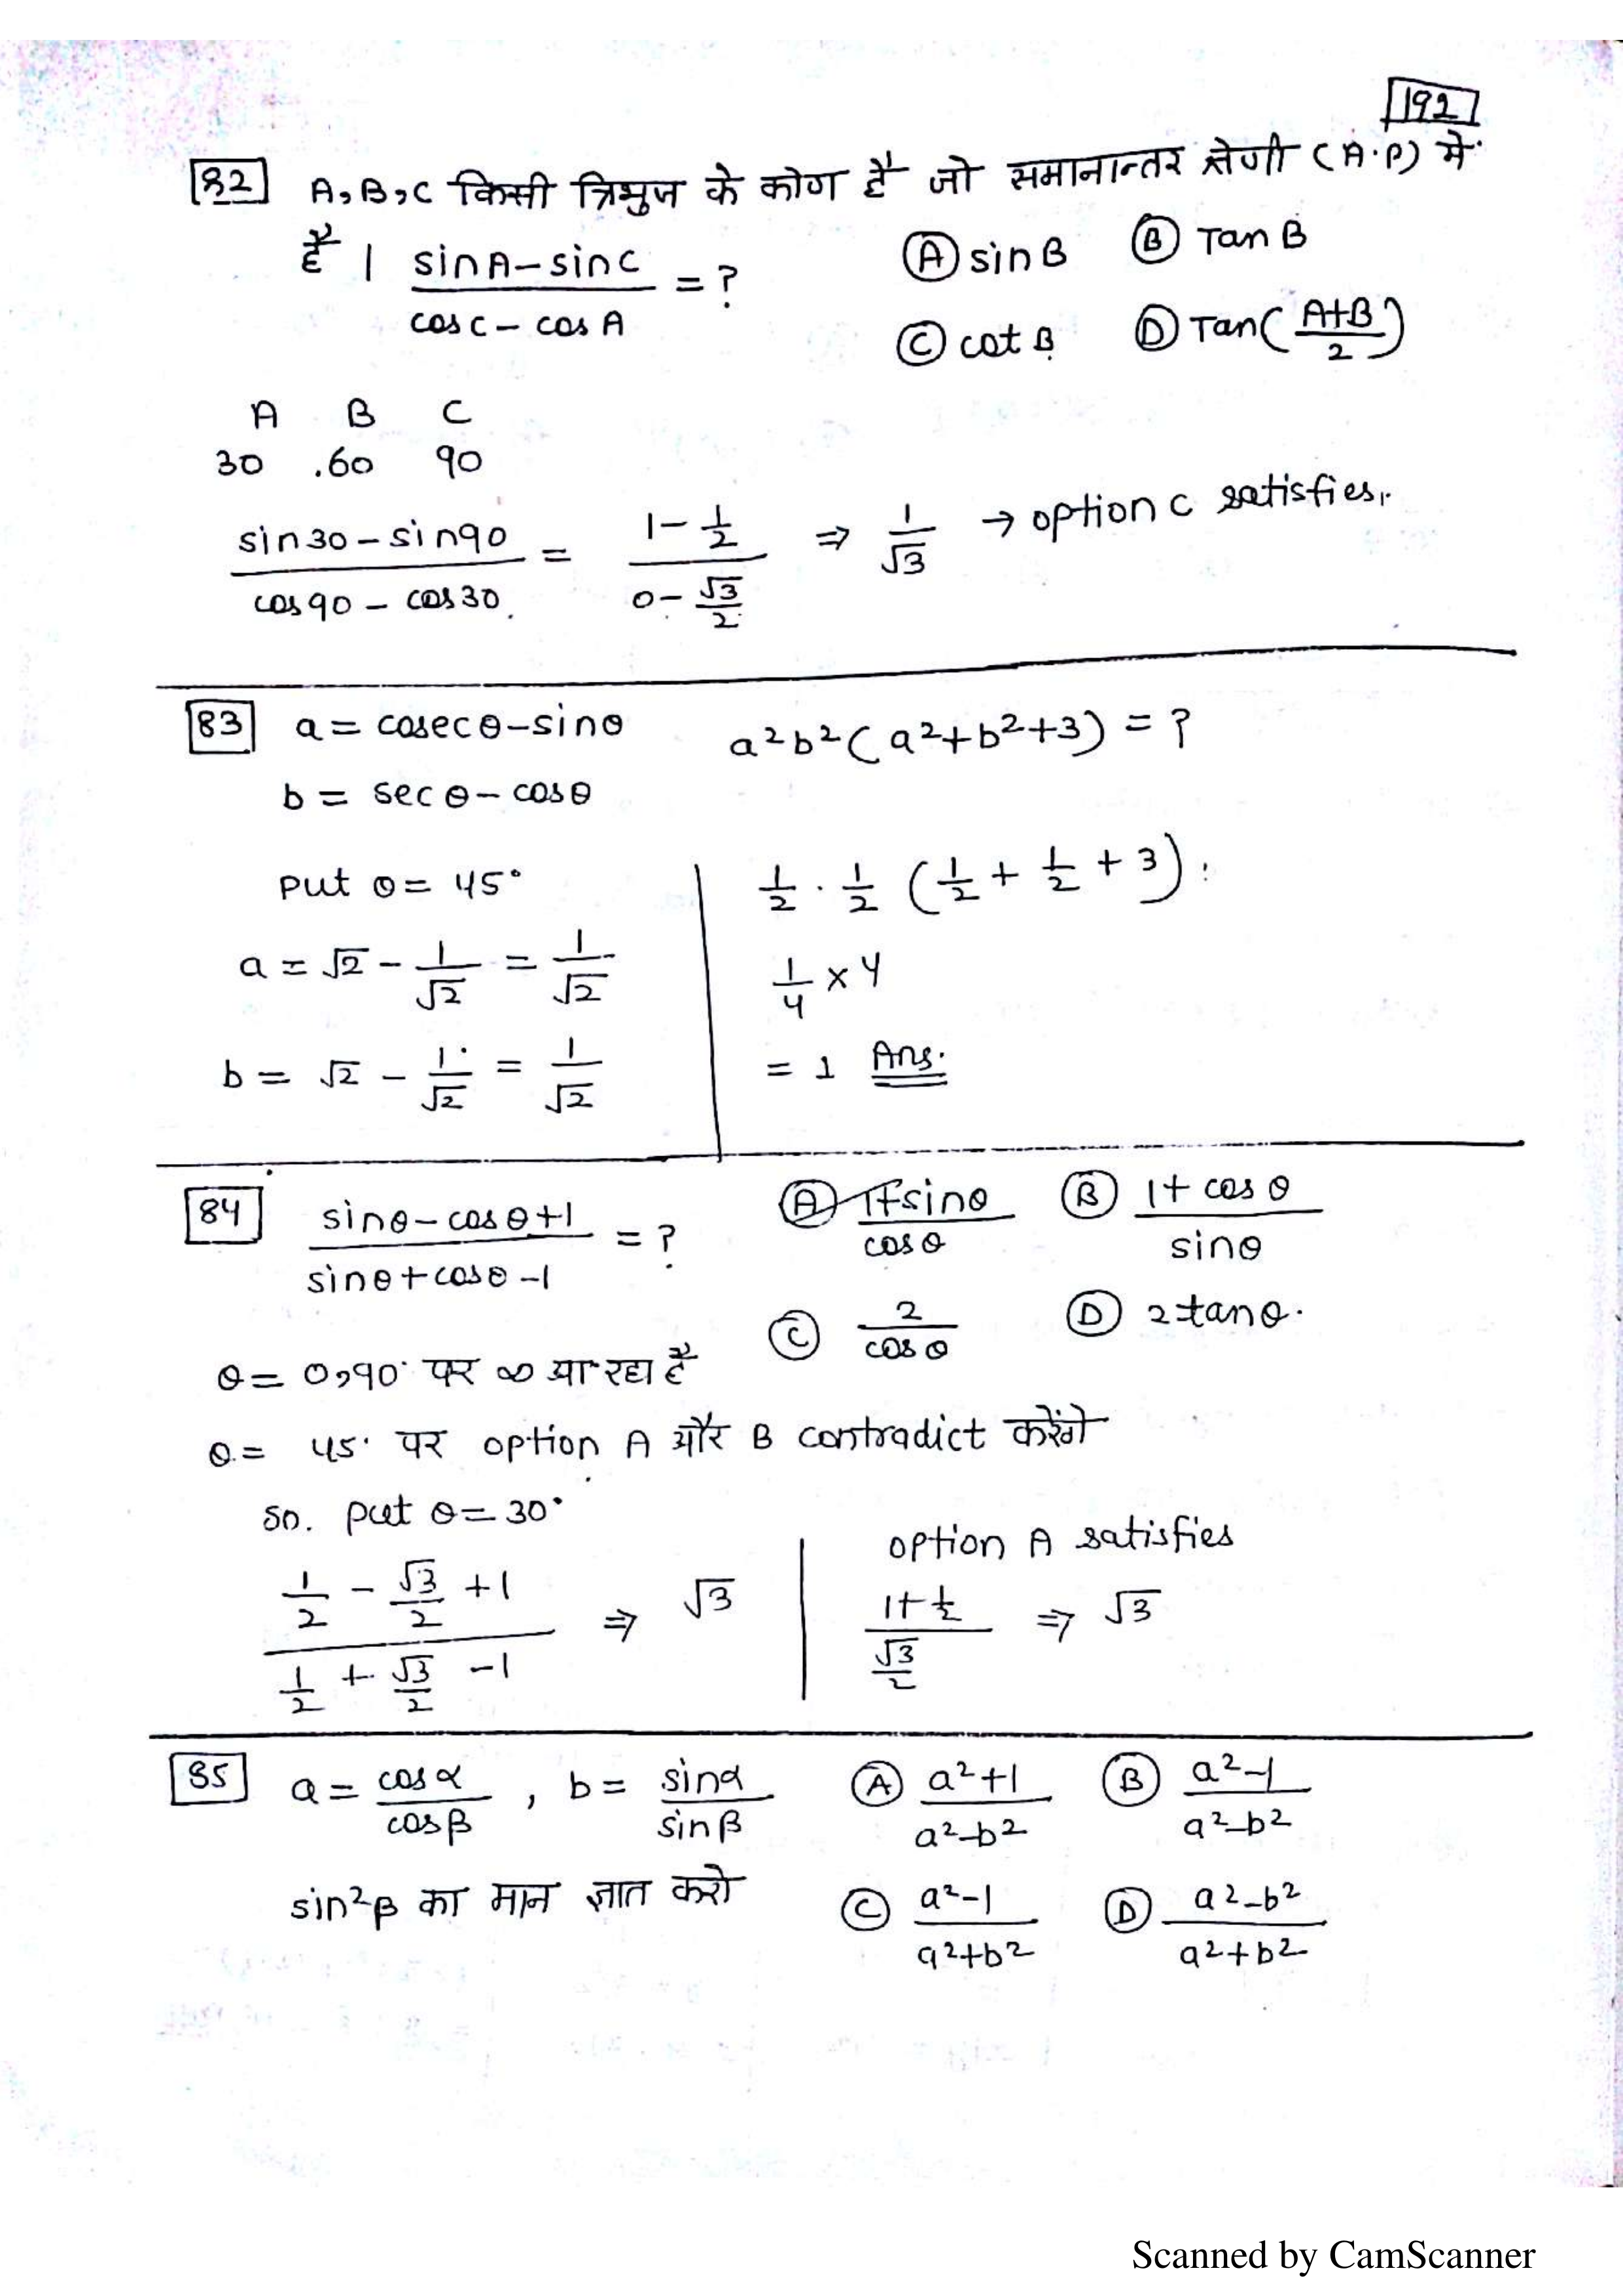 192
82 A, B, C किसी त्रिभुज के कोण है जो समानान्तर श्रेणी (A.P) में
हैं | sinA-sinC / cosC-cosA = ? (A) sinB (B) TanB
(C) cotB (D) Tan(A+B/2)
A B C
30 .60 90
sin30-sin90 / cos90-cos30. = 1-1/2 / 0-√3/2 ⇒ 1/√3 → option C satisfies.
83 a = cosecθ-sinθ a²b²(a²+b²+3) = ?
b = secθ-cosθ
Put θ = 45°
a = √2 - 1/√2 = 1/√2
b = √2 - 1/√2 = 1/√2
1/2 . 1/2 (1/2 + 1/2 + 3)
1/4 x 4
= 1 Ans.
84 sinθ-cosθ+1 / sinθ+cosθ-1 = ? (A) 1+sinθ / cosθ (B) 1+cosθ / sinθ
(C) 2 / cosθ (D) 2tanθ.
θ = 0,90° पर ∞ आ रहा है
θ = 45° पर option A और B contradict करेंगे
so. put θ = 30°
1/2 - √3/2 + 1 / 1/2 + √3/2 - 1 ⇒ √3
option A satisfies
1+1/2 / √3/2 ⇒ √3
85 a = cosα / cosβ , b = sinα / sinβ (A) a²+1 / a²-b² (B) a²-1 / a²-b²
sin²β का मान ज्ञात करो (C) a²-1 / a²+b² (D) a²-b² / a²+b²
Scanned by CamScanner